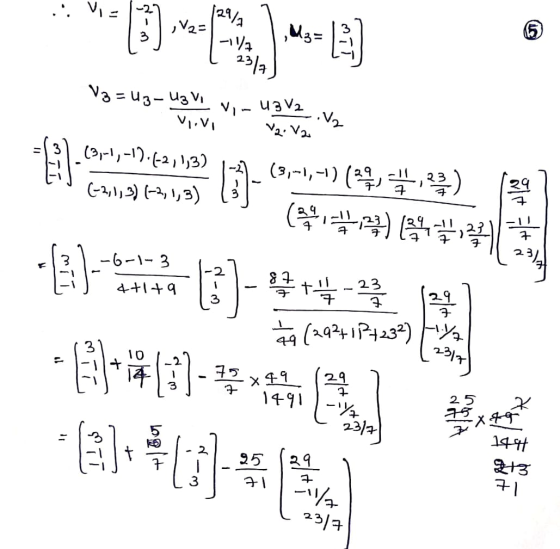 ∴ V₁ = [-2 1 3], V₂ = [29/7 -11/7 23/7], u₃ = [3 -1 -1] ⑤
V₃ = u₃ - (u₃v₁)/(V₁.V₁) V₁ - (u₃V₂)/(V₂.V₂) . V₂
= [3 -1 -1] - ((3,-1,-1).(-2,1,3))/((-2,1,3)(-2,1,3)) [-2 1 3] - ((3,-1,-1)(29/7, -11/7, 23/7))/((29/7, -11/7, 23/7)(29/7, -11/7, 23/7)) [29/7 -11/7 23/7]
= [3 -1 -1] - (-6-1-3)/(4+1+9) [-2 1 3] - (87/7 + 11/7 - 23/7)/(1/49 (29²+11²+23²)) [29/7 -11/7 23/7]
= [3 -1 -1] + 10/14 [-2 1 3] - 75/7 × 49/1491 [29/7 -11/7 23/7]
25 7
75/7 × 49/1491
213
71
= [3 -1 -1] + 5/7 [-2 1 3] - 25/71 [29/7 -11/7 23/7]